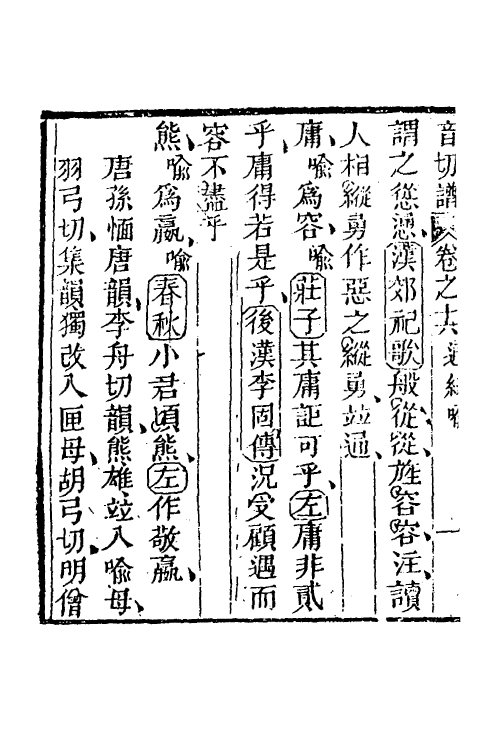 音切譜卷之十六通紐喻 一
謂之慫慂漢郊祀歌般從從旌容容注讀
人相縱勇作惡之縱勇竝通
庸喻爲容喻莊子其庸詎可乎左庸非貳
乎庸得若是乎後漢李固傳況受顧遇而
容不盡乎
熊喻爲嬴喻春秋小君頃熊左作敬嬴
唐孫愐唐韻李舟切韻熊雄竝入喻母
羽弓切集韻獨改入匣母胡弓切明僧